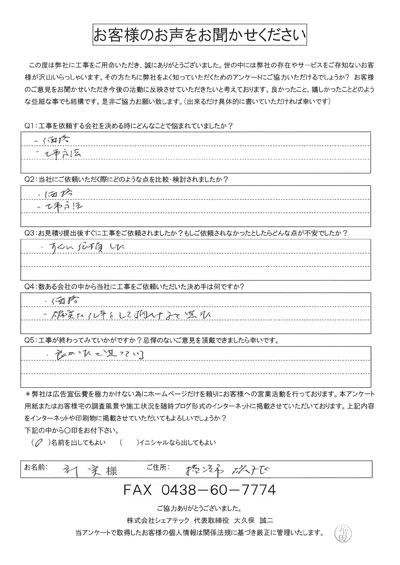 お客様のお声をお聞かせください
この度は弊社に工事をご用命いただき、誠にありがとうございました。世の中には弊社の存在やサービスをご存知ないお客
様が沢山いらっしゃいます。その方たちに弊社をよく知っていただくためのアンケートにご協力いただけるでしょうか？ お客様
のご意見をお聞かせいただき今後の活動に反映させていただきたいと考えております。良かったこと、嬉しかったことどのよう
な些細な事でも結構です。是非ご協力お願い致します。（出来るだけ具体的に書いていただければ幸いです）
Q1：工事を依頼する会社を決める時にどんなことで悩まれていましたか？
・価格
・工事方法
Q2：当社にご依頼いただく際にどのような点を比較・検討されましたか？
・価格
・工事方法
Q3：お見積り提出後すぐに工事をご依頼されましたか？もしご依頼されなかったとしたらどんな点が不安でしたか？
・すぐに依頼した
Q4：数ある会社の中から当社に工事をご依頼いただいた決め手は何ですか？
・価格
Q5：工事が終わってみていかがですか？忌憚のないご意見を頂戴できましたら幸いです。
＊弊社は広告宣伝費を極力かけない為にホームページだけを頼りにお客様への営業活動を行っております。本アンケート
用紙またはお客様宅の調査風景や施工状況を随時ブログ形式のインターネットに掲載させていただいております。上記内容
をインターネットや印刷物に掲載させていただいてもよろしいでしょうか？
下記の中から〇印をお付下さい。
（〇）名前を出してもよい （ ）イニシャルなら出してもよい
お名前： 様 ご住所：
FAX 0438-60-7774
ご協力ありがとうございました。
株式会社シェアテック 代表取締役 大久保 誠二
当アンケートで取得したお客様の個人情報は関係法規に基づき厳正に管理いたします。